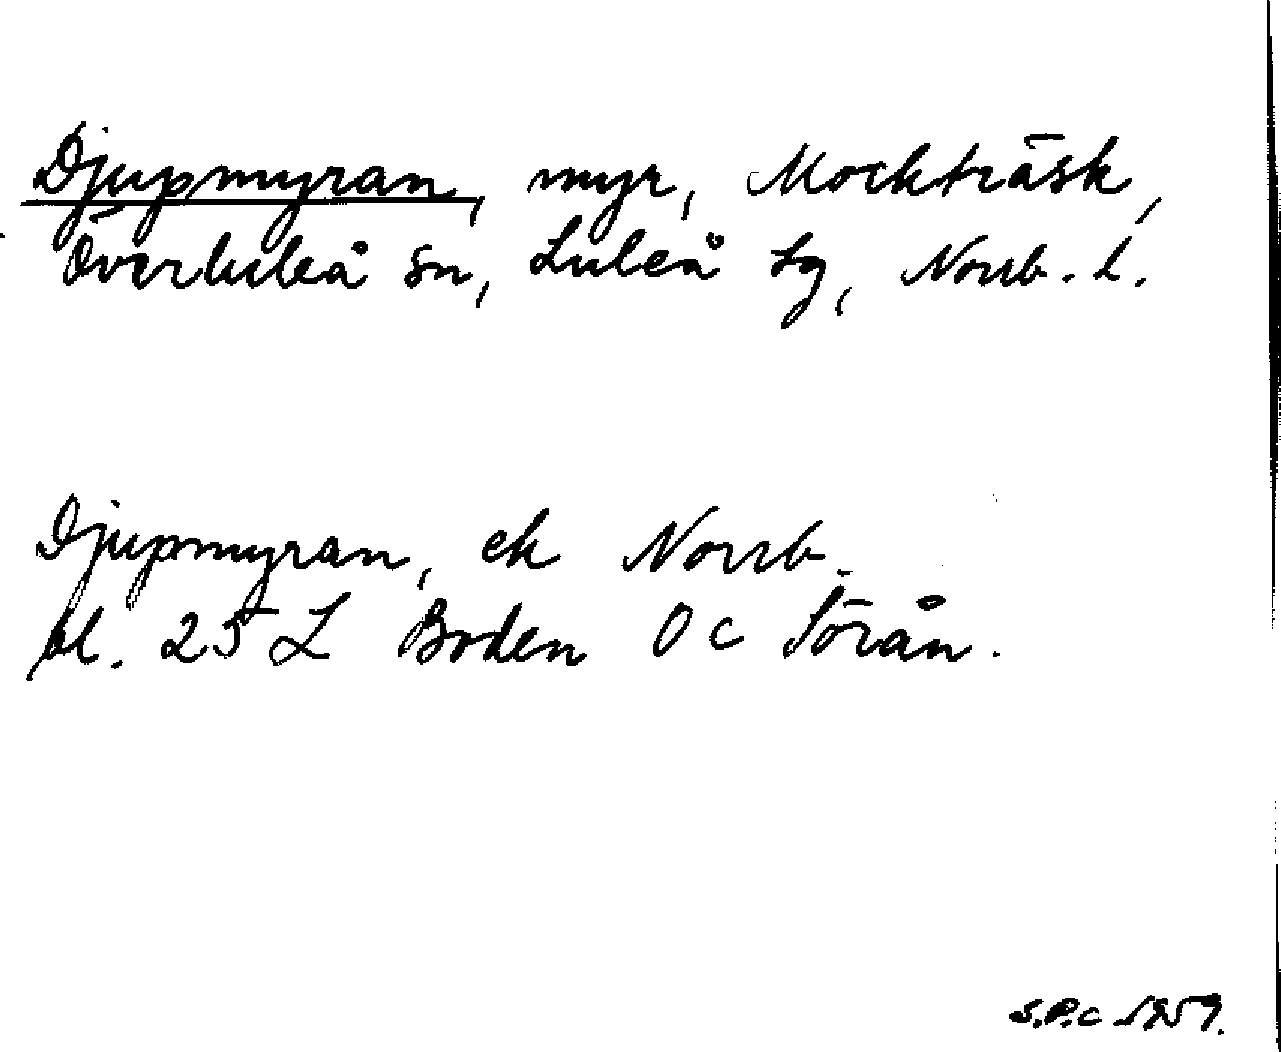 Djupmyran, myr, Mockträsk,
Överluleå sn, Luleå tg, Norrb. l.
Djupmyran, ek Norrb.
bl. 25 L Boden O c Sörån.
S.P.c 1959.